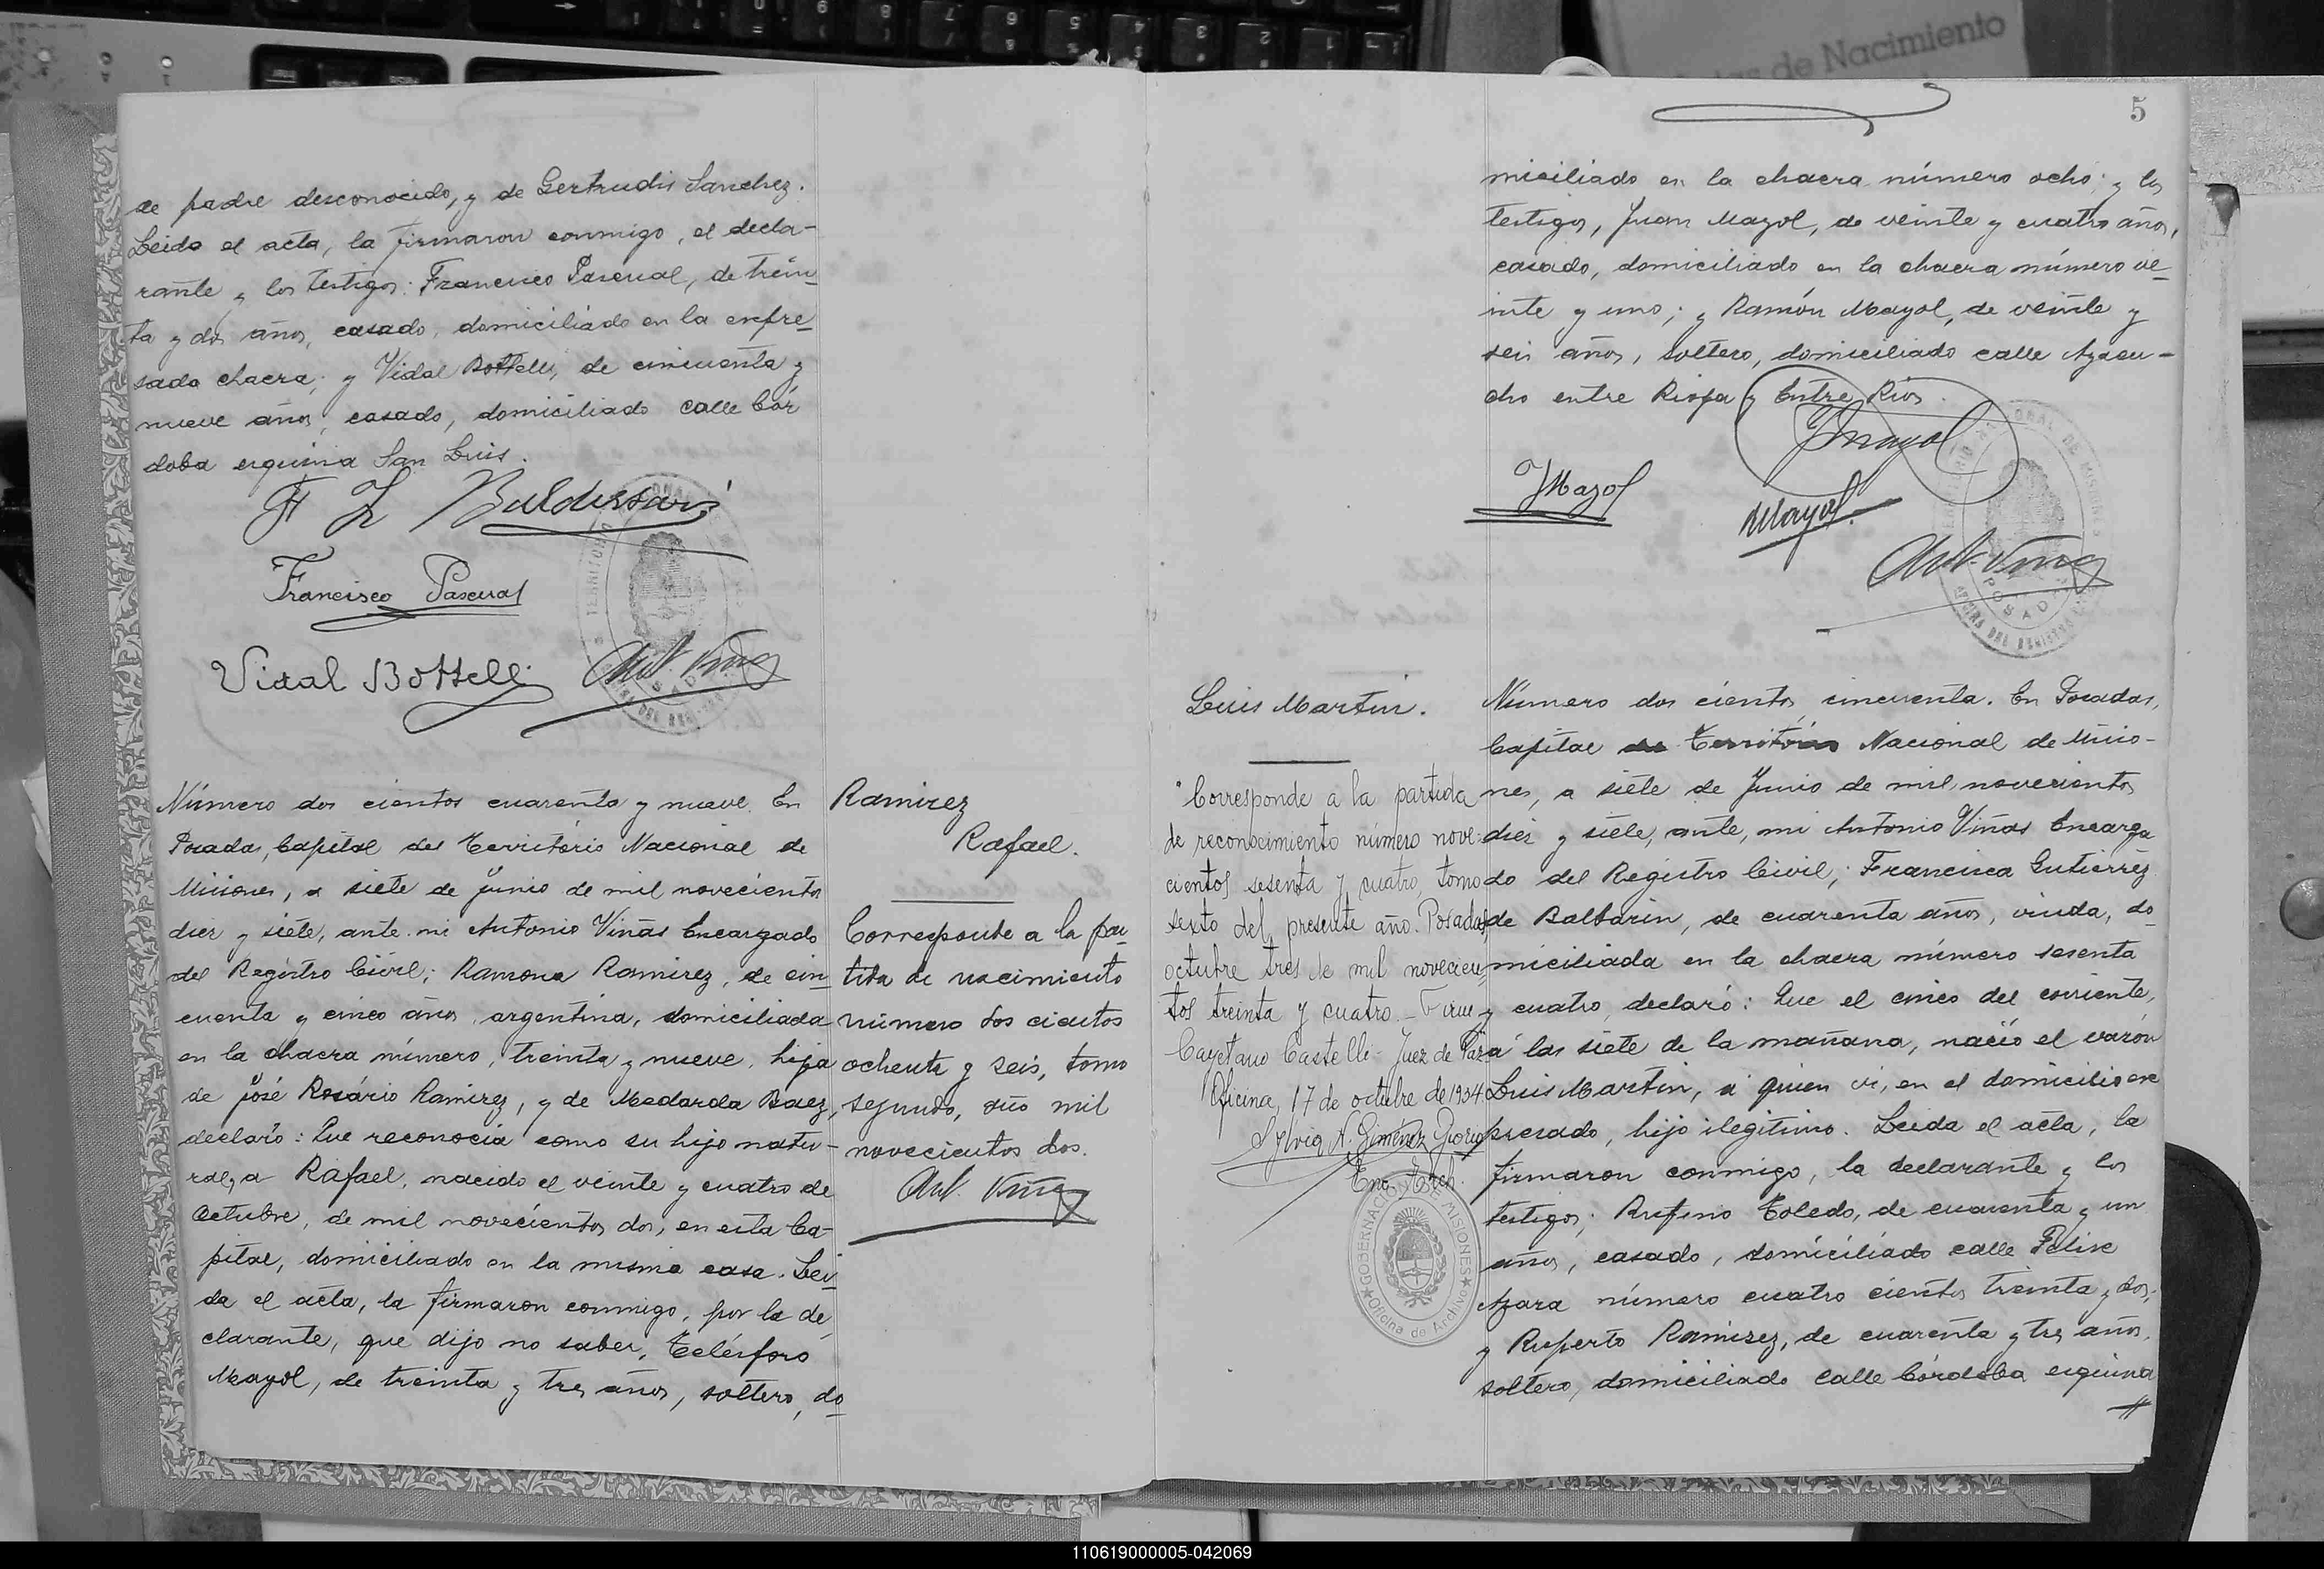 de padre desconocido, y de Gertrudis Sanchez.
Leida el acta, la firmaron conmigo, el decla-
rante y los testigos: Francisco Pascual, de trein-
ta y dos años, casado, domiciliado en la expre-
sada chacra; y Vidal Bottelli, de cincuenta y
nueve años, casado, domiciliado calle Cór
doba esquina San Luis.
Francisco Pascual
Vidal Bottelli
Ant. Viñas
Número dos cientos cuarenta y nueve. En
Posadas, Capital del Território Nacional de
Misiones, a siete de Junio de mil novecientos
diez y siete, ante mi Antonio Viñas Encargado
del Registro Civil; Ramona Ramirez, de cin-
cuenta y cinco años, argentina, domiciliada
en la chacra número, treinta y nueve, hija
de José Rosário Ramirez, y de Medarda Baez,
declaró: Que reconocia como su hijo natu-
ral, a Rafael, nacido el veinte y cuatro de
Octubre, de mil novecientos dos, en esta Ca-
pital, domiciliado en la misma casa. Lei-
da el acta, la firmaron conmigo, por la de
clarante, que dijo no saber, Telésforo
Mayol, de treinta y tres años, soltero, do
Ramirez
Rafael.
Corresponde a la par-
tida de nacimiento
número dos cientos
ochenta y seis, tomo
segundo, año mil
novecientos dos.
Ant. Viñas
5
miciliado en la chacra número ocho; y los
testigos, Juan Mayol, de veinte y cuatro años,
casado, domiciliado en la chacra número ve-
inte y uno; y Ramón Mayol, de veinte y
seis años, soltero, domiciliado calle Ayacu-
cho entre Rioja y Entre Rios.
JMayol
RMayol.
Ant. Viñas
Luis Martin.
"Corresponde a la partida
de reconocimiento número nove-
cientos sesenta y cuatro, tomo
sexto del presente año. Posadas,
octubre tres de mil novecien-
tos treinta y cuatro.-
Cayetano Castelli- Juez de Paz
Oficina, 17 de octubre de 1934.
Enc. Arch.
GOBERNACION DE MISIONES
Oficina de Archivo
Número dos cientos, cincuenta. En Posadas,
Capital del Território Nacional de Misio-
nes, a siete de Junio de mil novecientos
diez y siete, ante, mi Antonio Viñas Encarga
do del Registro Civil; Francisca Gutierrez
de Balbarin, de cuarenta años, viuda, do
miciliada en la chacra número sesenta
y cuatro, declaró: Que el cinco del corriente,
á las siete de la mañana, nació el varón
Luis Martin, a quien vi, en el domicilio ex
presado, hijo ilegitimo. Leida el acta, la
firmaron conmigo, la declarante y los
testigos; Rufino Toledo, de cuarenta y un
años, casado, domiciliado calle Felix
Azara número cuatro cientos treinta y dos;
y Ruperto Ramirez, de cuarenta y tres años,
soltero, domiciliado calle Córdoba esquina
110619000005-042069